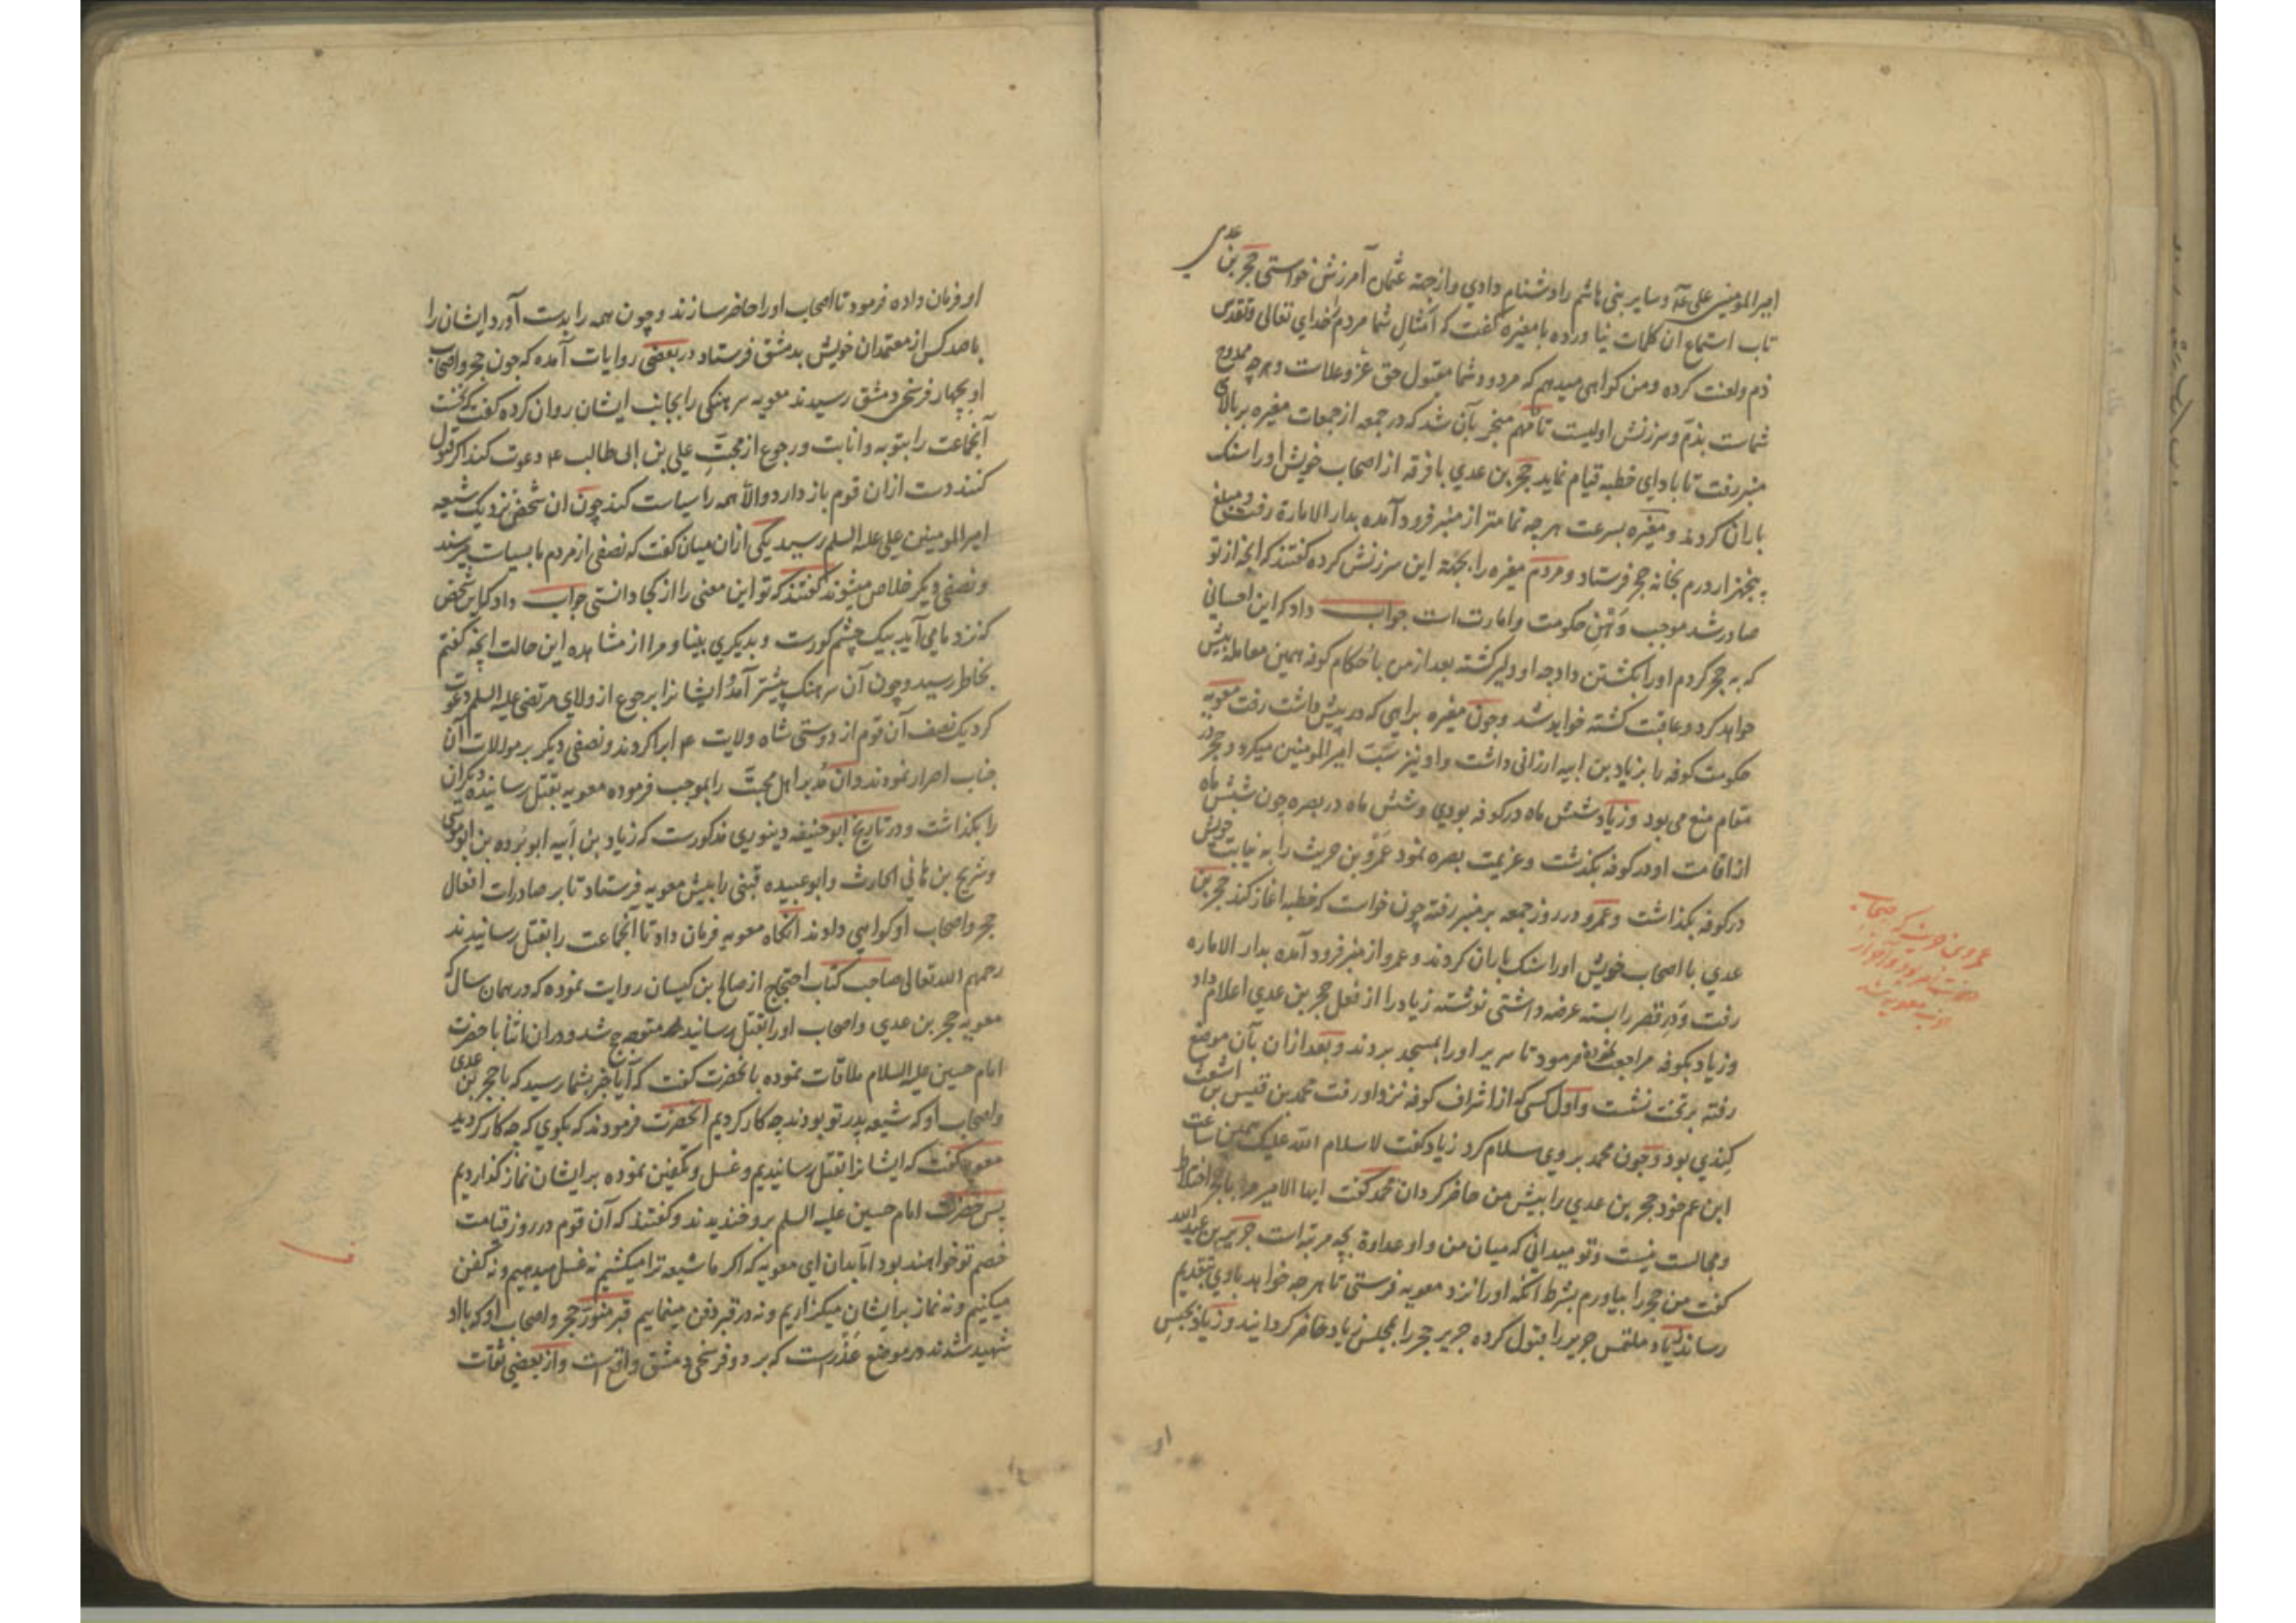 امیر المومنین علی عم و سایر بنی هاشم را دشنام دادی و از جهة عثمان آمرزش خواستی حجر بن عدی
تاب استماع ان کلمات نیاورده با مغیره گفت که امثال شما مردم خدای تعالی
ذم ولعنت کرده و من کواهی میدهم که مردود شما مقبول حق عزوعلاست و هرچه ممدوح
شماست بذم و سرزنش اولیست تا مهم منجر بآن شد که در جمعه از جمعات مغیره بر بالای
منبر رفت تا بادای خطبه قیام نماید حجر بن عدی با فرقه از اصحاب خویش او را سنک
باران کردند و مغیره بسرعت هرچه تمامتر از منبر فرود آمده بدار الامارة رفت و مبلغ
پنجهزار درم بخانه حجر فرستاد و مردم مغیره را بجهة این سرزنش کرده گفتند که انچه از تو
صادر شد موجب وهن حکومت و امارت است جواب داد که این احسانی
که به حجر کردم او را بکشتن داد چه او دلیر کشته بعد از من با حکام کوفه همین معامله پیش
خواهد کرد و عاقبت کشته خواهد شد و چون مغیره براهی که در پیش داشت رفت معویه
حکومت کوفه را بزیاد بن ابیه ارزانی داشت و او نیز سب امیر المومنین میکرد و حجر در
مقام منع می بود و زیاد شش ماه در کوفه بودی و شش ماه در بصره چون شش ماه
از اقامت او در کوفه بکذشت و عزیمت بصره نمود عمرو بن حریث را به نیابت خویش
در کوفه بکذاشت و عمرو در روز جمعه بر منبر رفته چون خواست که خطبه اغاز کند حجر بن
عدی با اصحاب خویش او را سنک باران کردند و عمرو از منبر فرود آمده بدار الاماره
رفت و در قصر را بسته عرضه داشتی نوشته زیاد را از فعل حجر بن عدی اعلام داد
و زیاد بکوفه مراجعت نموده فرمود تا سریر او را بمسجد بردند و بعد از ان بآن موضع
رفته بر تخت نشست و اول کسی که از اشراف کوفه نزد او رفت محمد بن قیس بن اشعث
کندی بود و چون محمد بر وی سلام کرد زیاد گفت لا سلام الله علیک همین ساعت
ابن عم خود حجر بن عدی را پیش من حاضر کردان محمد گفت ایها الامیر مرا با حجر اختلاط
و مجالست نیست و تو میدانی که میان من و او عداوة بچه مرتبه است جریر بن عبد الله
گفت من حجر را بیاورم بشرط انکه او را نزد معویه فرستی تا هرچه خواهد با وی بتقدیم
رساند زیاد ملتمس جریر را قبول کرده جریر حجر را بمجلس زیاد حاضر کردانید و زیاد بحبس
عمرو بن حریث که
او فرمان داده فرمود تا اصحاب او را حاضر سازند و چون همه را بدست آورد ایشان را
با صد کس از معتمدان خویش بدمشق فرستاد در بعضی روایات آمده که چون حجر و اصحاب
او بچهار فرسخی دمشق رسیدند معویه سرهنکی را بجانب ایشان روان کرده گفت که نخست
آنجماعت را بتوبه و انابت و رجوع از محبت علی بن ابی طالب عم دعوت کند اکر قبول
کنند دست از ان قوم باز دارد والا همه را سیاست کند چون ان شخص نزدیک شیعه
امیر المومنین علی علیه السلم رسید یکی از ان میان گفت که نصفی از مردم ما بسیاست میرسند
و نصفی دیکر خلاص میشوند گفتند که تو این معنی را از کجا دانستی جواب داد که این شخص
که نزد ما می آید بیک چشم کورست و بدیکری بینا و مرا از مشاهده این حالت انچه گفتم
بخاطر رسید و چون آن سرهنک پیشتر آمد و ایشانرا برجوع از ولای مرتضی علیه السلم دعوت
کرد یک نصف آن قوم از دوستی شاه ولایت عم ابرا کردند و نصفی دیکر بر موالات آن
جناب اصرار نمودند و ان مدبر اهل محبت را بموجب فرموده معویه بقتل رسانید و دیکران
را بکذاشت و در تاریخ ابو حنیفه دینوری مذکورست که زیاد بن ابیه ابو برده بن ابو موسی
و شریح بن هانی الحارث و ابو عبیده قینی را پیش معویه فرستاد تا بر صادرات افعال
حجر و اصحاب او کواهی دادند انکاه معویه فرمان داد تا آنجماعت را بقتل رسانیدند
رحمهم الله تعالی صاحب کتاب احتجاج از صالح بن کیسان روایت نموده که در همان سال که
معویه حجر بن عدی و اصحاب او را بقتل رسانید متوجه حج شد و در ان اثنا با حضرت
امام حسین علیه السلام ملاقات نموده با نحضرت گفت که آیا خبر بشما رسید که با حجر بن عدی
و اصحاب او که شیعه پدر تو بودند چه کار کردیم انحضرت فرمودند که بکوی که چه کار کردید
معویه گفت که ایشانرا بقتل رسانیدیم و غسل و تکفین نموده بر ایشان نماز کذاردیم
پس حضرت امام حسین علیه السلم بر و خندیدند و گفتند که آن قوم در روز قیامت
خصم تو خواهند بود اما بدان ای معویه که اکر ما شیعه ترا میکشیم نه غسل میدهیم و نه کفن
میکنیم و نه نماز بر ایشان میکزاریم و نه در قبر دفن مینماییم قبر منور حجر و اصحاب او که با او
شهید شدند در موضع عذرست که بر دو فرسخی دمشق واقع است و از بعضی ثقات